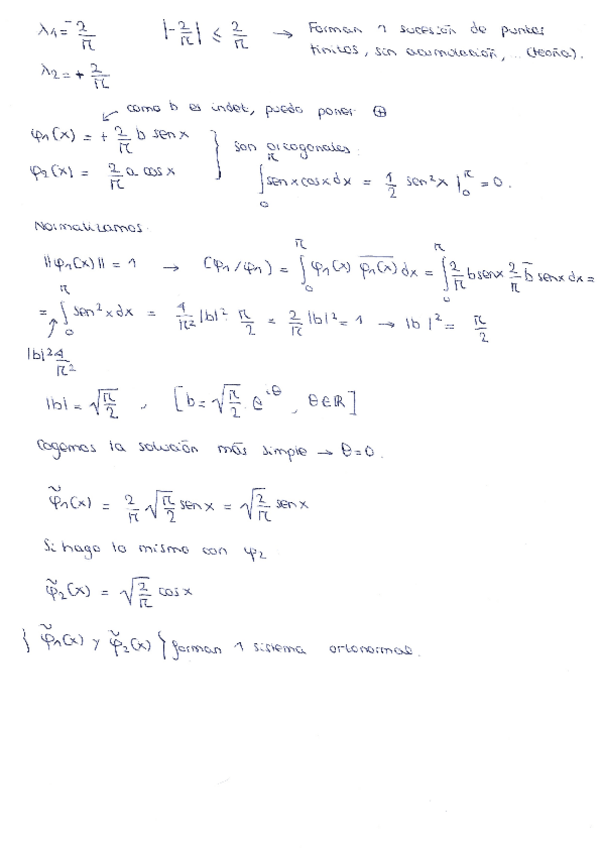 λ1 = -2/π |-2/π| ≤ 2/π → Forman 1 sucesión de puntos
finitos, sin acumulación, ... (teoría).
λ2 = + 2/π
como b es indet, puedo poner ⊕
φ1(x) = + 2/π b sen x
φ2(x) = 2/π a cos x } son ortogonales:
∫₀^π sen x cos x dx = 1/2 sen² x |₀^π = 0.
Normalizamos.
||φ1(x)|| = 1 → (φ1/φ1) = ∫₀^π φ1(x) \overline{φ1(x)} dx = ∫₀^π 2/π b sen x 2/π \overline{b} sen x dx =
= ∫₀^π sen² x dx = 4/π² |b|² · π/2 = 2/π |b|² = 1 → |b|² = π/2
|b|² 4/π²
|b| = √π/2 , [b = √π/2 · e^{iθ}, θ∈ℝ]
Cogemos la solución más simple → θ=0.
φ̃1(x) = 2/π √π/2 sen x = √2/π sen x
Si hago lo mismo con φ2
φ̃2(x) = √2/π cos x
{ φ̃1(x) y φ̃2(x) } forman 1 sistema ortonormal.